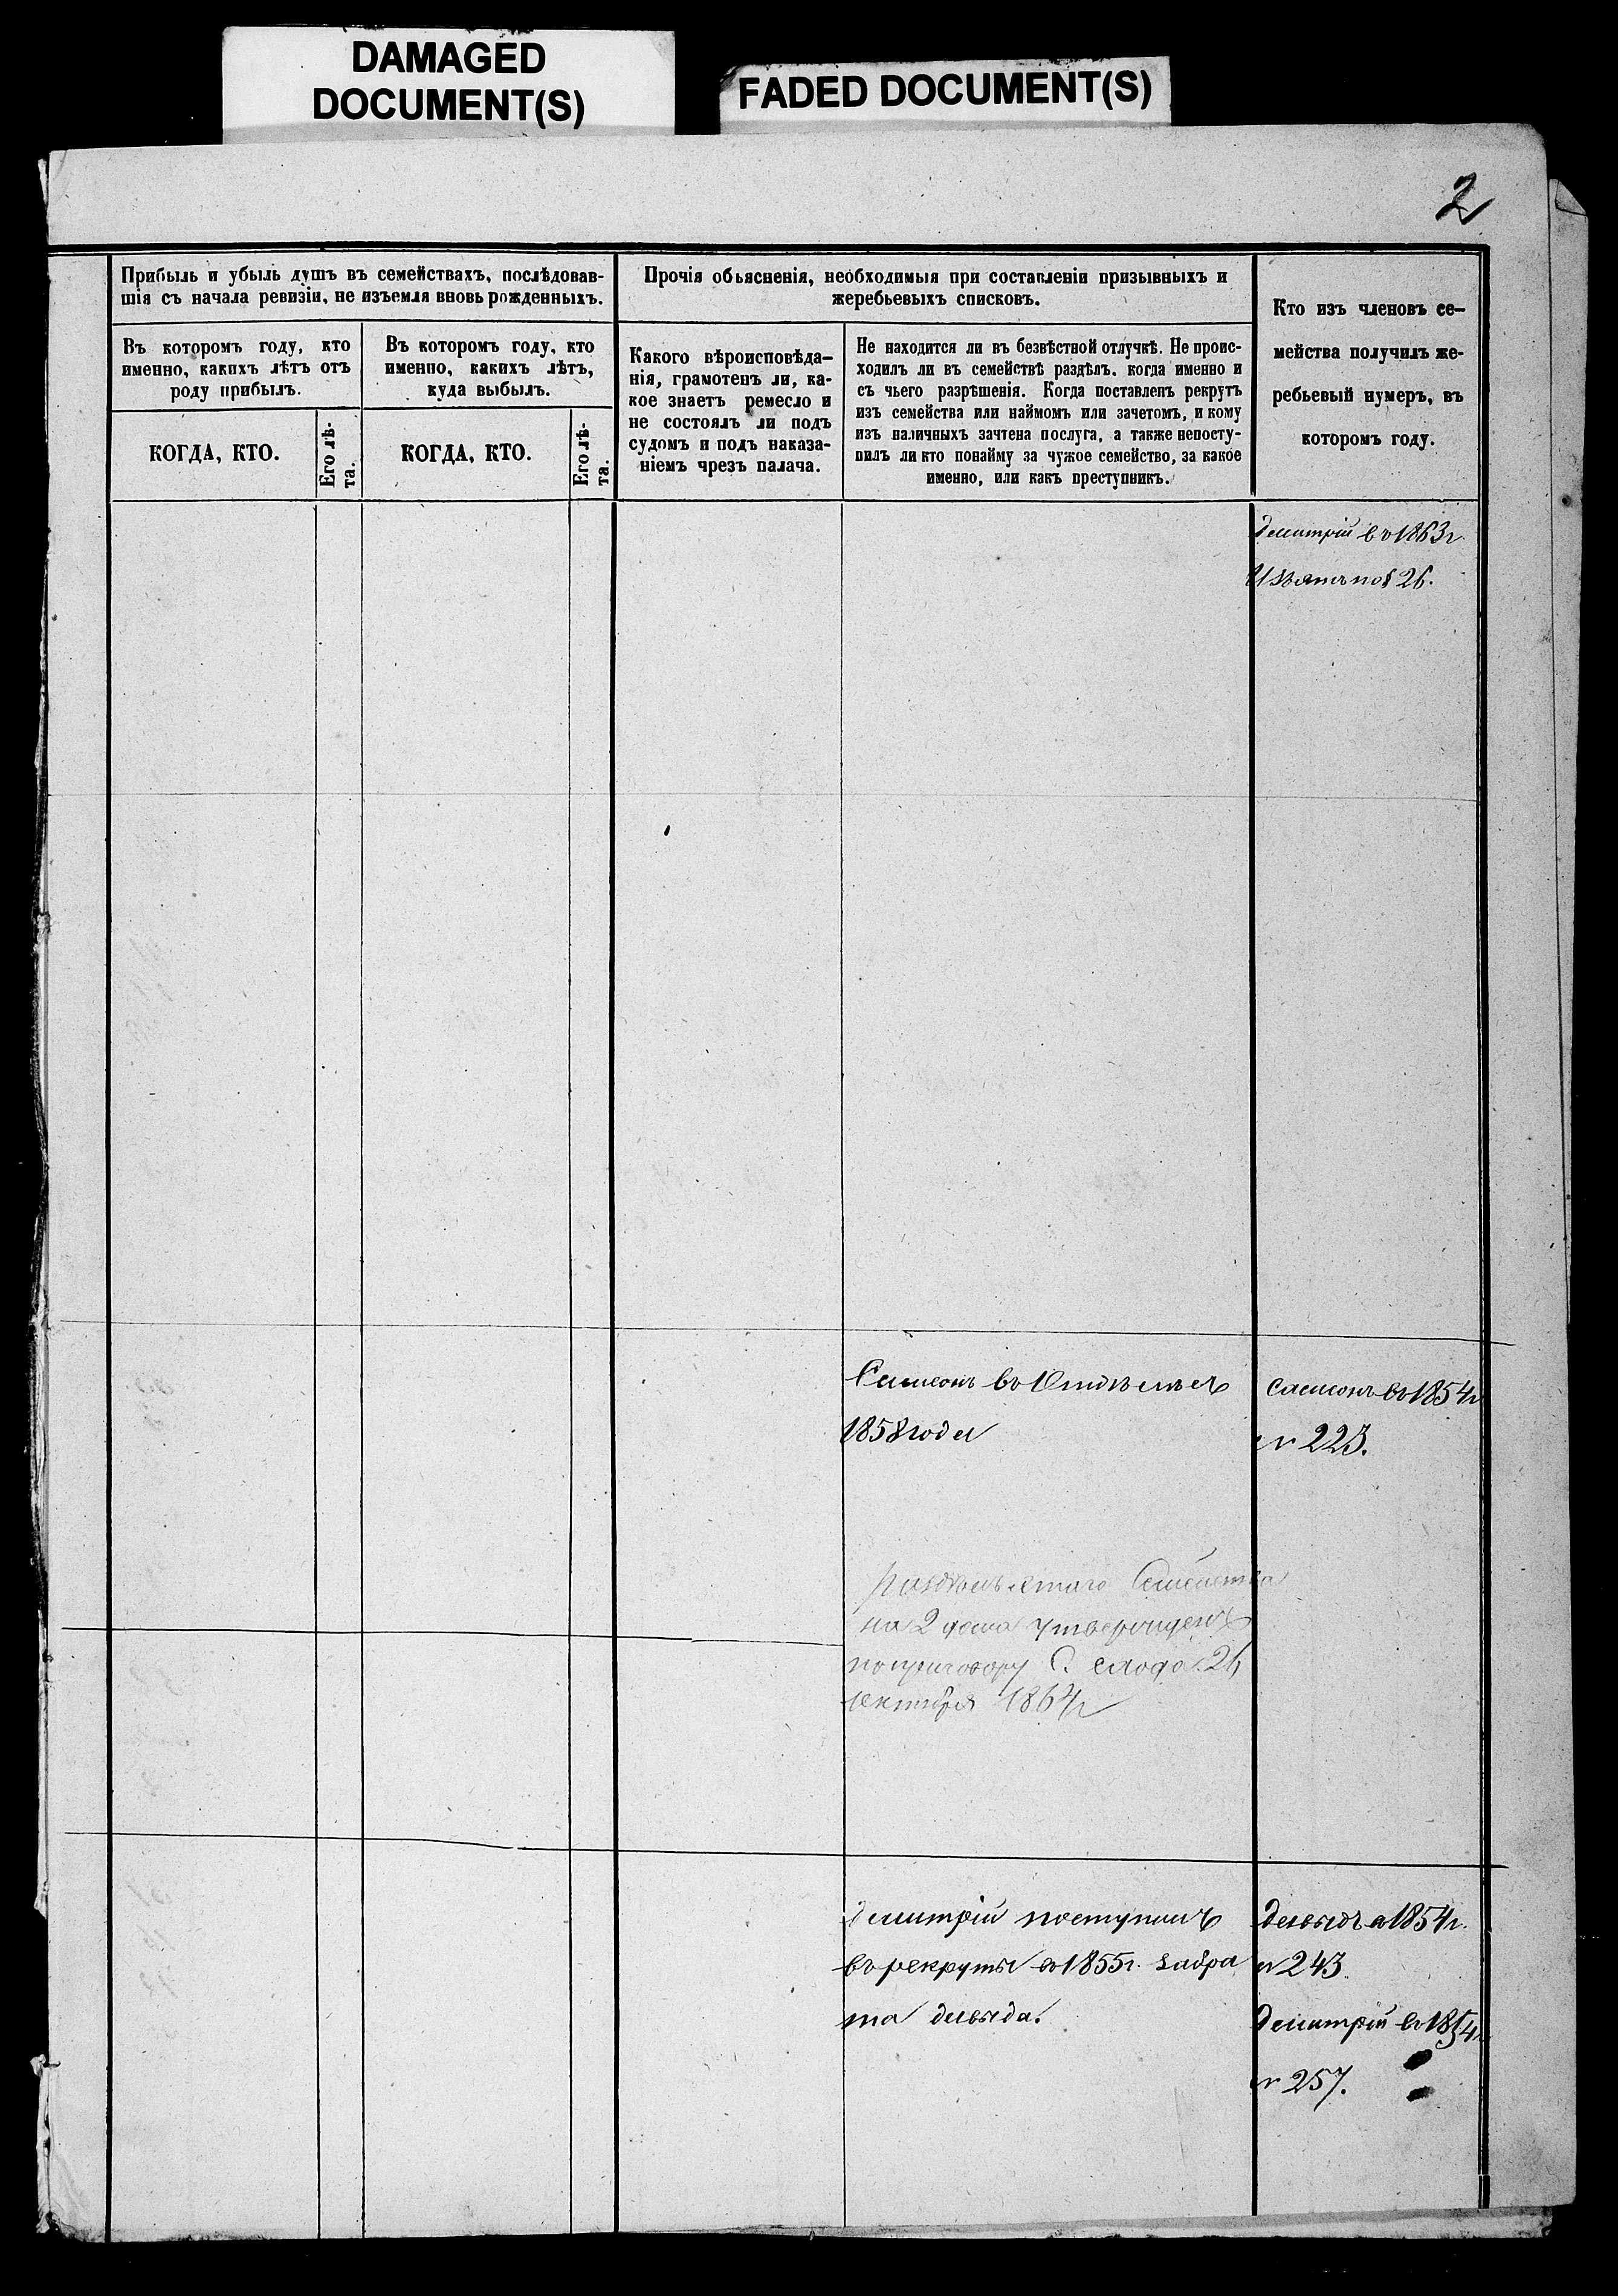 DAMAGED
DOCUMENT(S)
FADED DOCUMENT(S)
2
Прибыль и убыль душъ въ семействахъ, послѣдовав-
шія съ начала ревизіи, не изъемля вновь рожденныхъ.
Въ которомъ году, кто
именно, какихъ лѣтъ отъ
роду прибылъ.
КОГДА, КТО.
Его лѣ-
та.
Въ которомъ году, кто
именно, какихъ лѣтъ,
куда выбылъ.
КОГДА, КТО.
Его лѣ-
та.
Прочія объясненія, необходимыя при составленіи призывныхъ и
жеребьевыхъ списковъ.
Какого вѣроисповѣда-
нія, грамотенъ ли, ка-
кое знаетъ ремесло и
не состоялъ ли подъ
судомъ и подъ наказа-
ніемъ чрезъ палача.
Не находится ли въ безвѣстной отлучкѣ. Не проис-
ходилъ ли въ семействѣ раздѣлъ. когда именно и
съ чьего разрѣшенія. Когда поставленъ рекрутъ
изъ семейства или наймомъ или зачетомъ, и кому
изъ наличныхъ зачтена послуга, а также непосту-
пилъ ли кто понайму за чужое семейство, за какое
именно, или какъ преступникъ.
Кто изъ членовъ се-
мейства получилъ же-
ребьевый нумеръ, въ
которомъ году.
Дмитрій въ 1863г.
Изъятъ по § 26.
Самсонъ въ
1858 года
Самсонъ въ 1854г
№ 223.
семейства
на 2 утвержденъ
по приговору С. схода 26
октября 1864г
Дмитрій поступилъ
въ рекруты въ 1855г. за бра
та Давыда.
Давыдъ в 1854г.
№ 243
Дмитрій въ 1854г
№ 257.